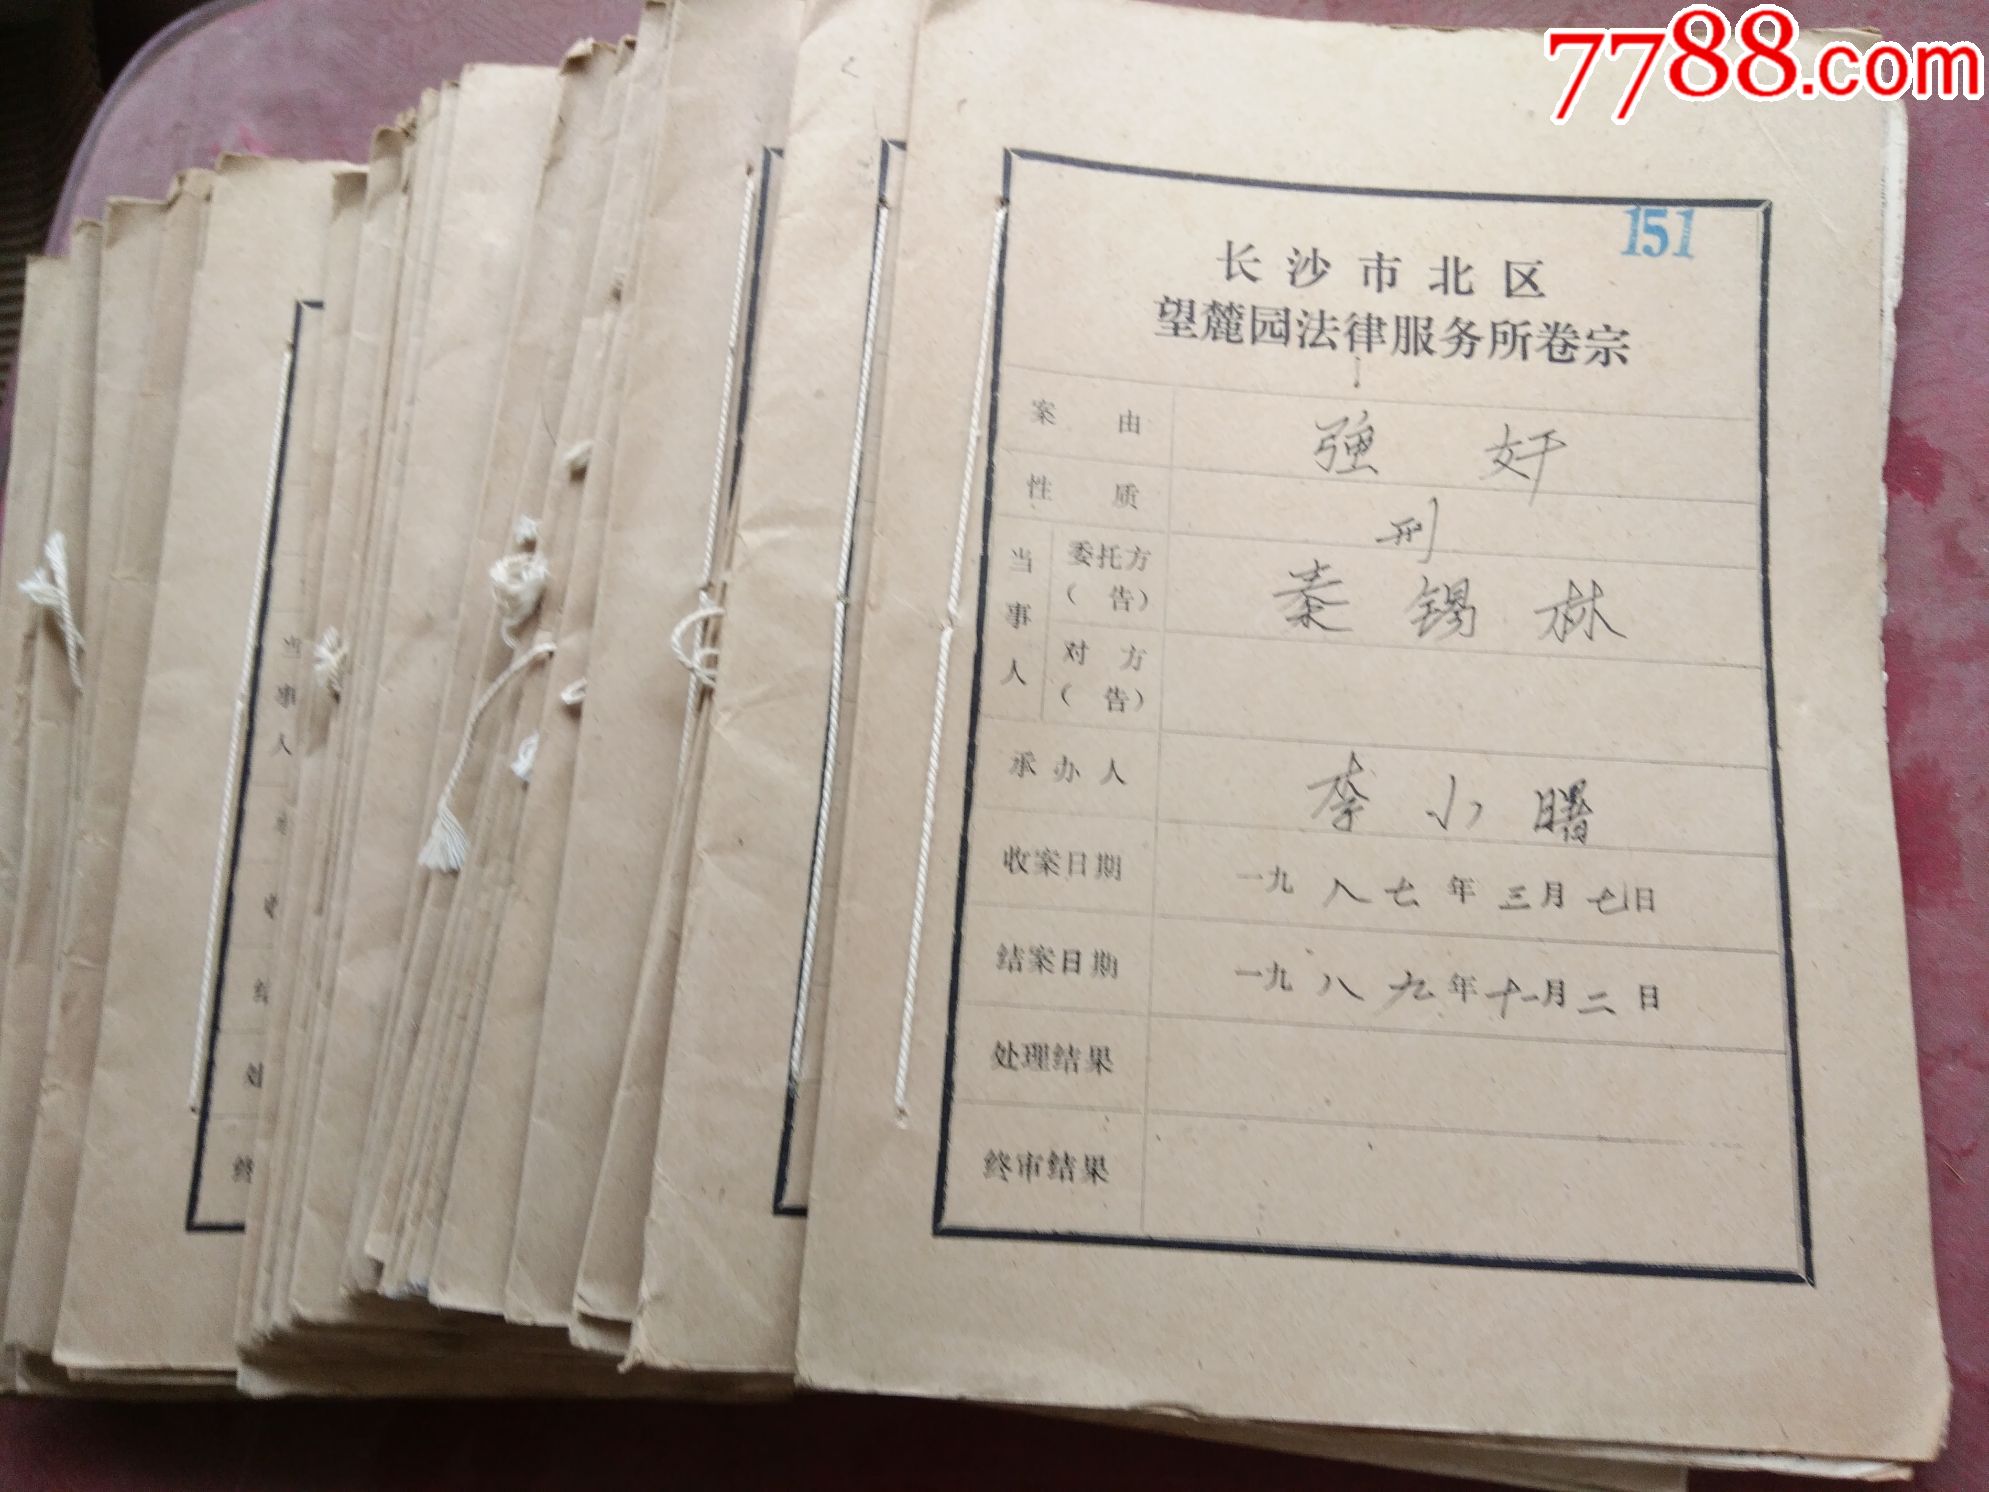 7788.com
151
长沙市北区
望麓园法律服务所卷宗
案由 強奸
性质 刑
当事人 委托方(告) 秦锡林
对方(告)
承办人 李小曙
收案日期 一九八七年三月七日
结案日期 一九八九年十一月二日
处理结果
终审结果
当事人
处
终